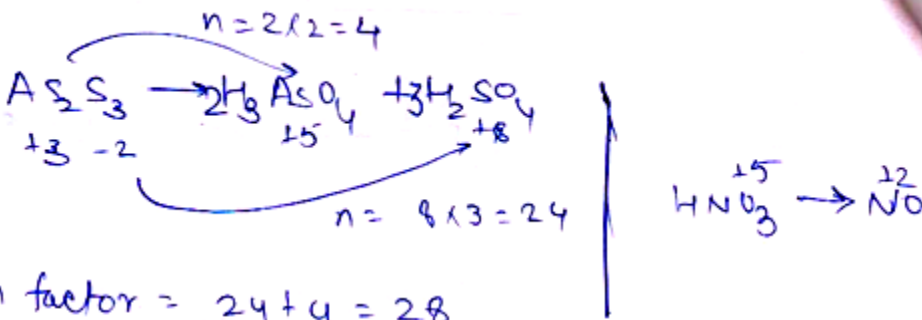 n = 2×2 = 4
As2S3 → 2H3AsO4 + 3H2SO4
+3 -2 +5 +8
n = 8×3 = 24
+5 +2
HNO3 → NO
factor = 24 + 4 = 28